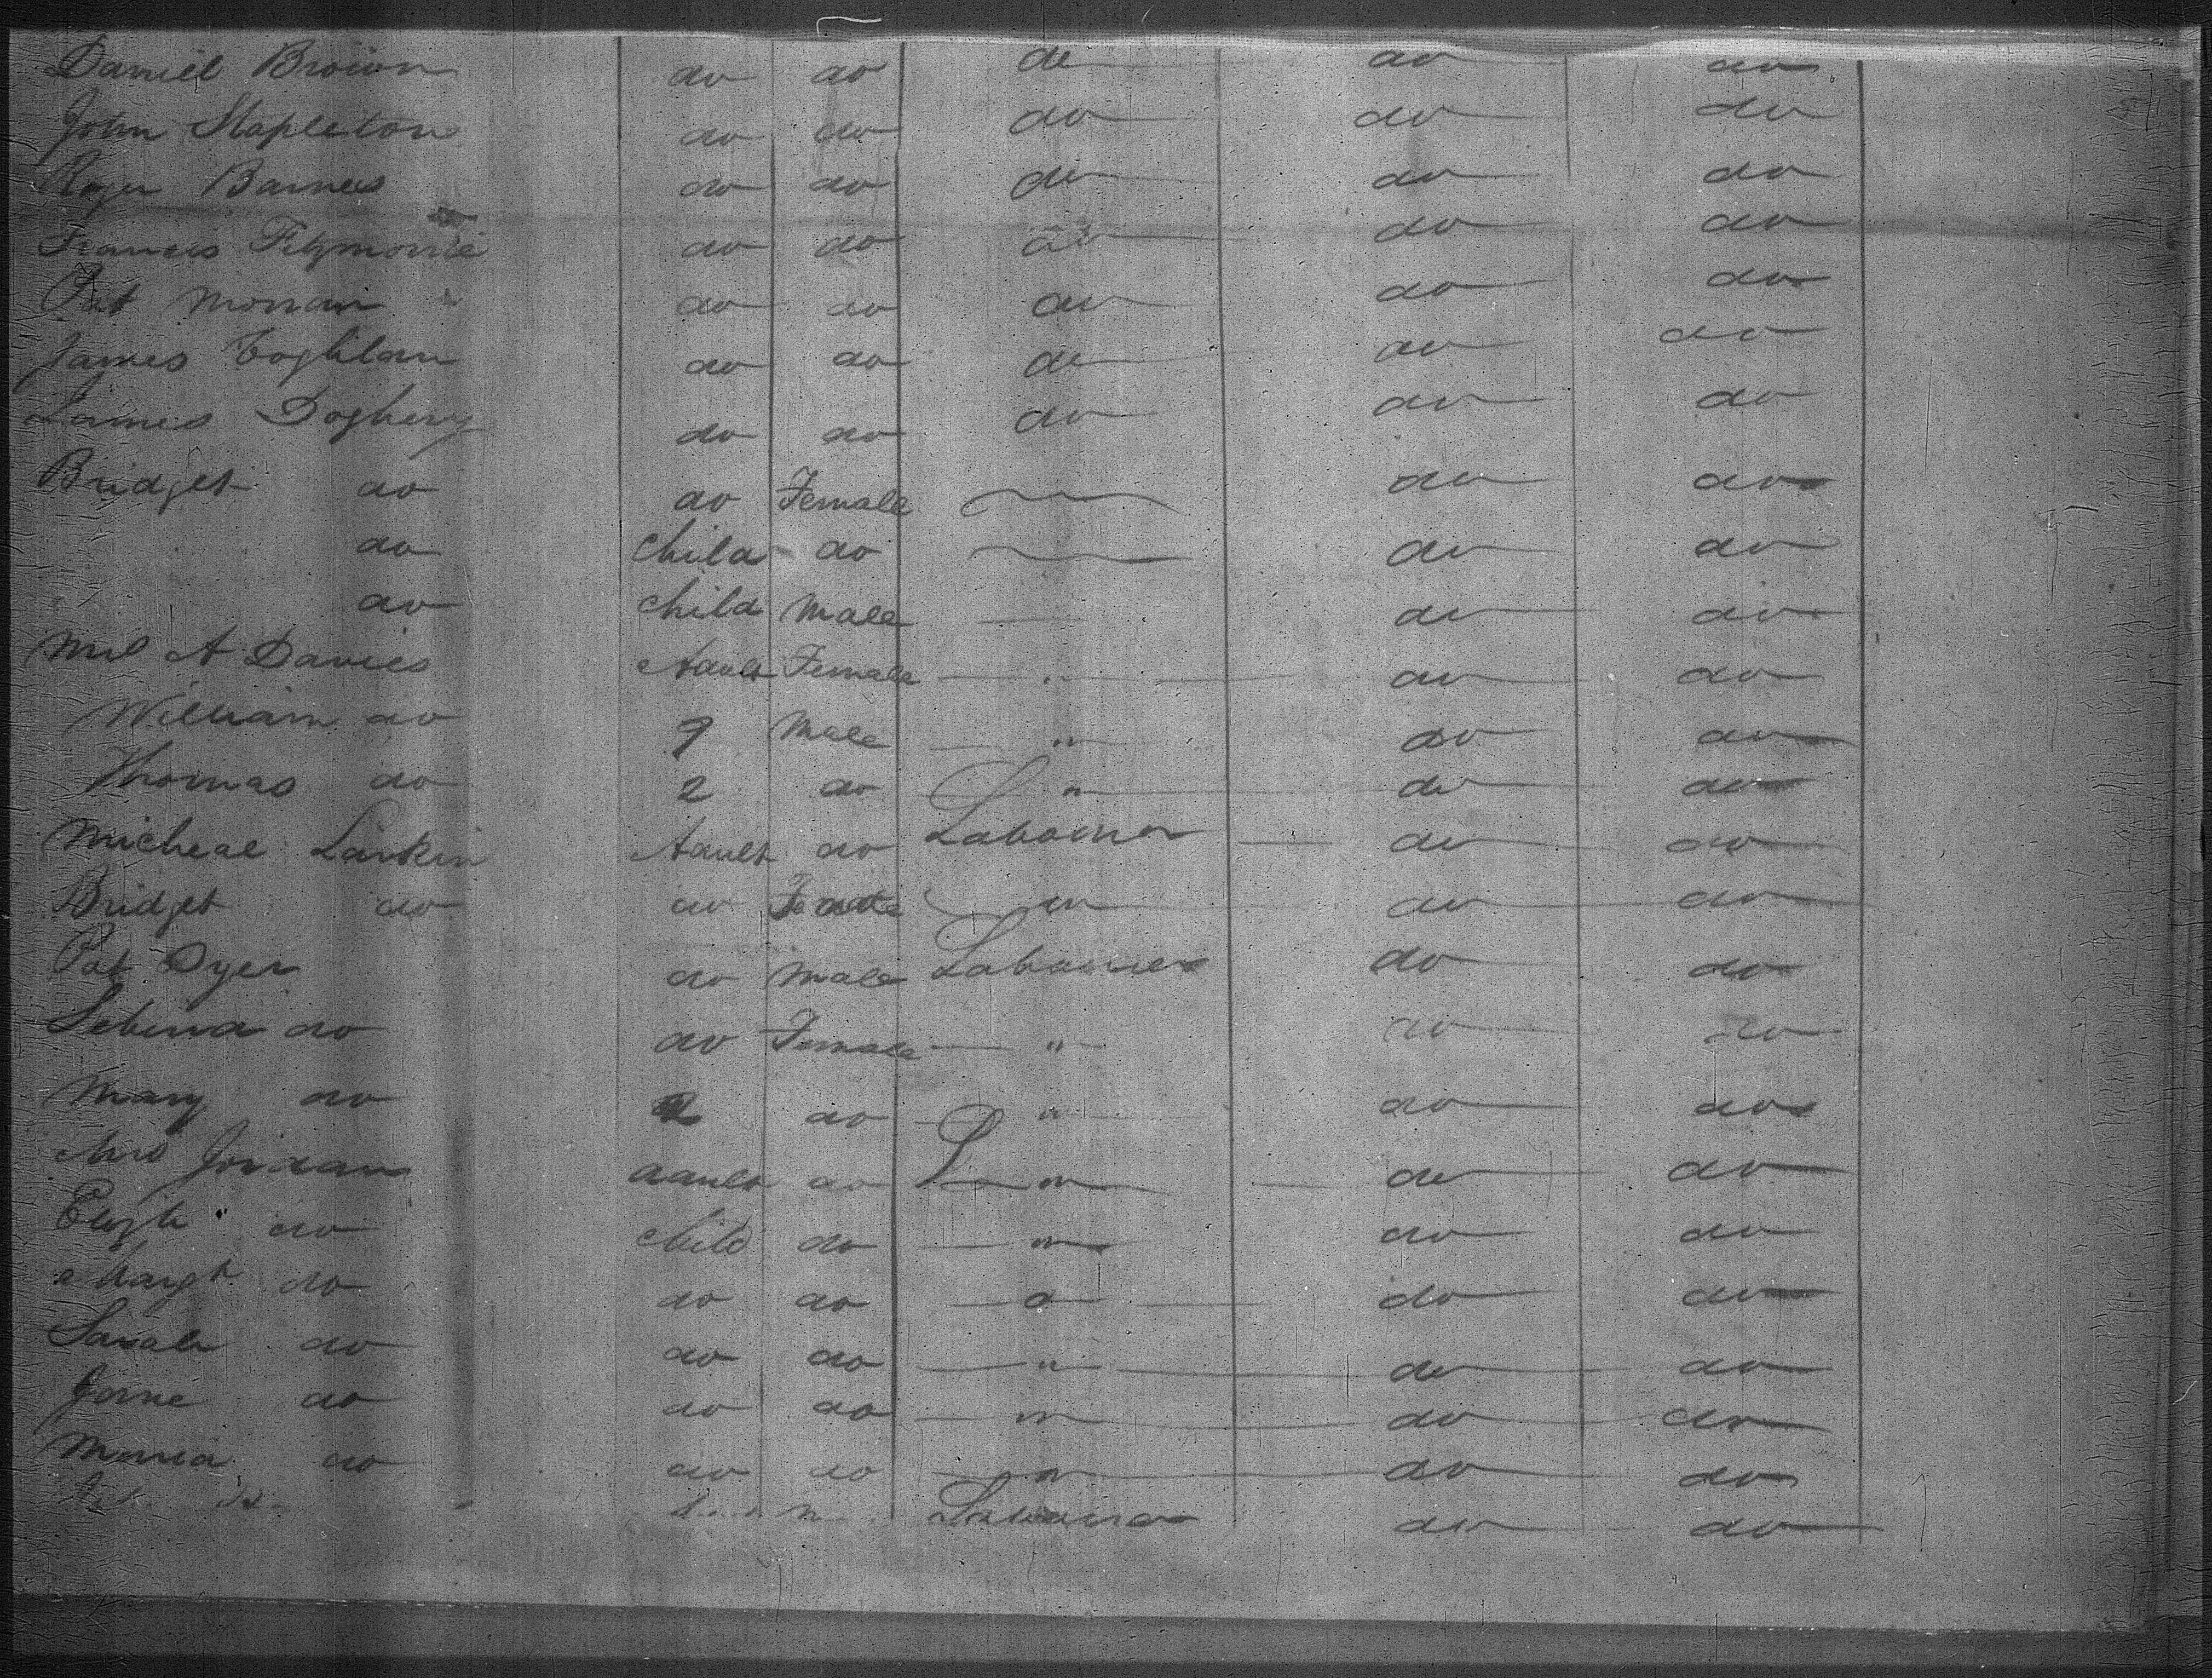 Daniel Brown do do do do do
John Stapleton do do do do do
Roger Barnes do do do do do
Frances do do do do do
Pat Morran do do do do do
James Coghlan do do do do do
James Doghery do do do do do
Bridget do do Female do do
do Child do do do
do Child Male do do
A Davies Adult Female " do do
William do 9 Male " do do
Thomas do 2 do " do do
Micheal Larkin Adult do Labourer do do
Bridget do do Female " do do
Pat Dyer do Male Labourer do do
do do Female " do do
Mary do 2 do " do do
Mrs Jordan adult do " do do
do child do " do do
Margt do do do " do do
Sarah do do do " do do
Jane do do do " do do
Maria do do do " do do
Labourer do do